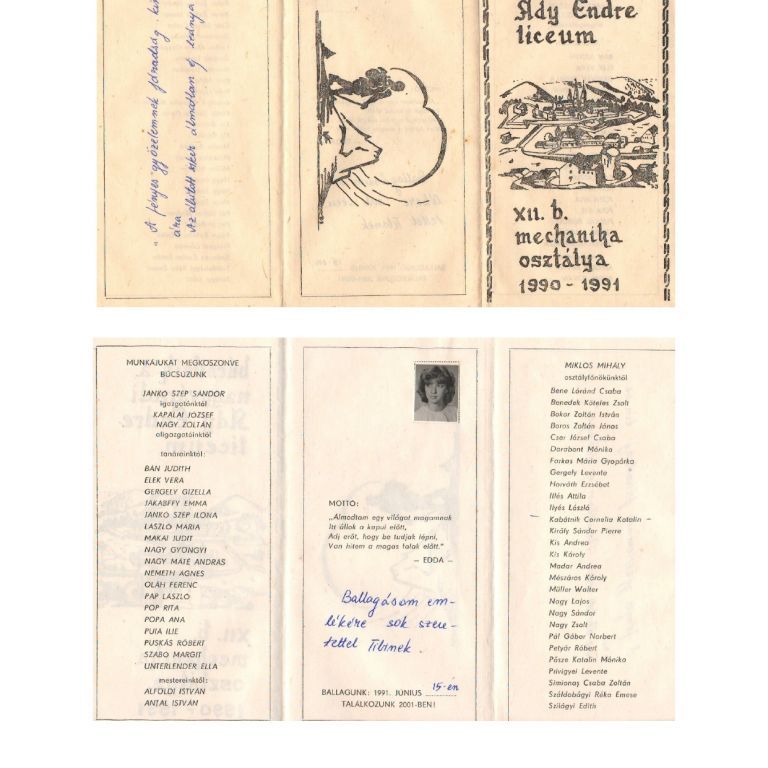 „A fényes győzelemnek fáradság
ára
Az áhított siker álmatlan éj leánya
Ady Endre
liceum
XII. b.
mechanika
osztálya
1990 - 1991
MUNKÁJUKAT MEGKÖSZÖNVE
BÚCSÚZUNK
JANKÓ SZÉP SÁNDOR
igazgatónktól
KAPALAI JÓZSEF
NAGY ZOLTÁN
aligazgatóinktól
tanárainktól:
BAN JUDITH
ELEK VERA
GERGELY GIZELLA
JAKABFFY EMMA
JANKÓ SZÉP ILONA
LÁSZLÓ MÁRIA
MAKAI JUDIT
NAGY GYÖNGYI
NAGY MÁTÉ ANDRÁS
NÉMETH ÁGNES
OLÁH FERENC
PAP LÁSZLÓ
POP RITA
POPA ANA
PUIA ILIE
PUSKÁS RÓBERT
SZABÓ MARGIT
UNTERLENDER ELLA
mestereinktől:
ALFÖLDI ISTVÁN
ANTAL ISTVÁN
MOTTO:
„Álmodtam egy világot magamnak
Itt állok a kapui előtt,
Adj erőt, hogy be tudjak lépni,
Van hitem a magas falak előtt.”
– EDDA –
Ballagásom em-
lékére sok szere-
tettel Tibinek.
BALLAGUNK: 1991. JÚNIUS 15-én
TALÁLKOZUNK 2001-BEN!
MIKLÓS MIHÁLY
osztályfőnökünktől
Bene Lóránd Csaba
Benedek Köteles Zsolt
Bokor Zoltán István
Boros Zoltán János
Cser József Csaba
Darabont Mónika
Farkas Mária Gyopárka
Gergely Levente
Horváth Erzsébet
Illés Attila
Ilyés László
– Kabátnik Cornelia Katalin –
Király Sándor Pierre
Kis Andrea
Kis Károly
Madar Andrea
Mészáros Károly
Müller Walter
Nagy Lajos
Nagy Sándor
Nagy Zsolt
Pál Gábor Norbert
Petyár Róbert
Püsze Katalin Mónika
Privigyei Levente
Simionaș Csaba Zoltán
Száldobágyi Réka Emese
Szilágyi Edith